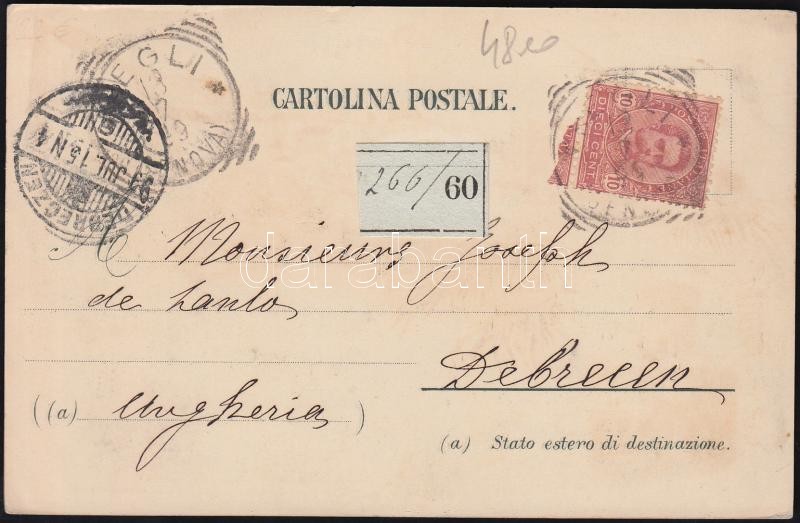 48
EGLI
(GENOVA)
DEBRECZEN
JUL. 15 N 4
CARTOLINA POSTALE.
10 DIECI CENT. 10
266/60
darabanth
M Monsieur Joseph
de Lanlo
Debrecen
((a) Ungheria )
(a) Stato estero di destinazione.